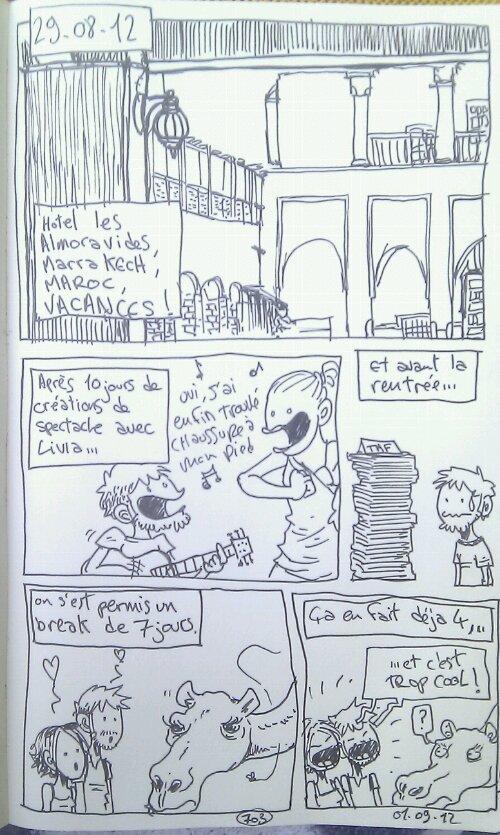 29-08-12
Hotel les
Almoravides,
MarraKECH,
MAROC,
VACANCES !
Après 10 jours de
créations de
spectacle avec
Livia...
oui, j'ai
enfin trouvé
chaussure à
mon pied
et avant la
rentrée...
TAF
on s'est permis un
break de 7 jours.
ça en fait déja 4,...
...et c'est
TROP COOL !
?
703
01.09.12